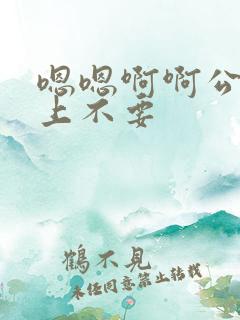 嗯嗯啊啊公
上不要
鶴不見
未经同意禁止转载